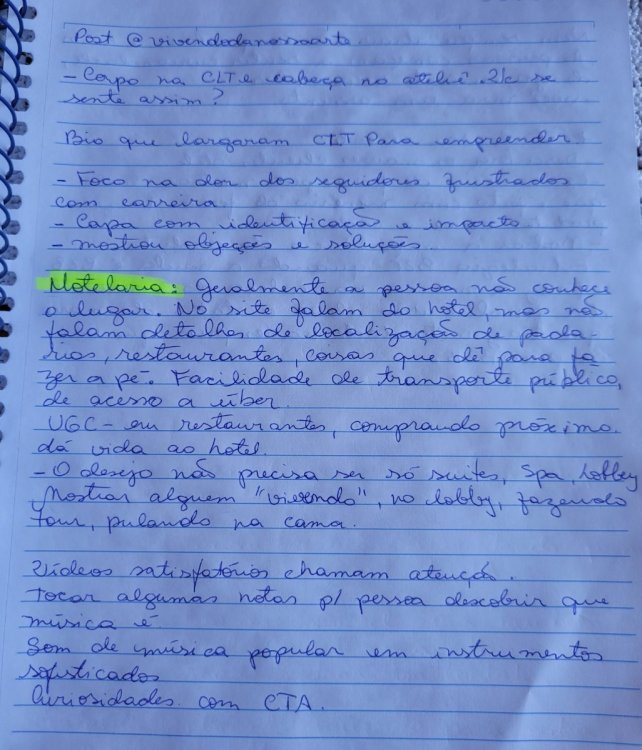 Post @vivendodanossaarte
- Corpo na CLT e cabeça no ateliê. Vc se
sente assim?
Bio que largaram CLT Para empreender
- Foco na dor dos seguidores frustrados
com carreira
- Capa com identificação e impacto
- mostrou objeções e soluções.
Hotelaria: Geralmente a pessoa não conhece
o lugar. No site falam do hotel, mas não
falam detalhes de localização de pada-
rias, restaurantes, coisas que dê para fa
zer a pé. Facilidade de transporte público,
de acesso a uber.
UGC - em restaurantes, comprando próximo
dá vida ao hotel.
- O desejo não precisa ser só suites, Spa, Lobby
Mostrar alguem "vivendo", no lobby, fazendo
tour, pulando na cama.
Vídeos satisfatórios chamam atenção.
Tocar algumas notas p/ pessoa descobrir que
música é
Som de música popular em instrumentos
sofisticados
Curiosidades com CTA.